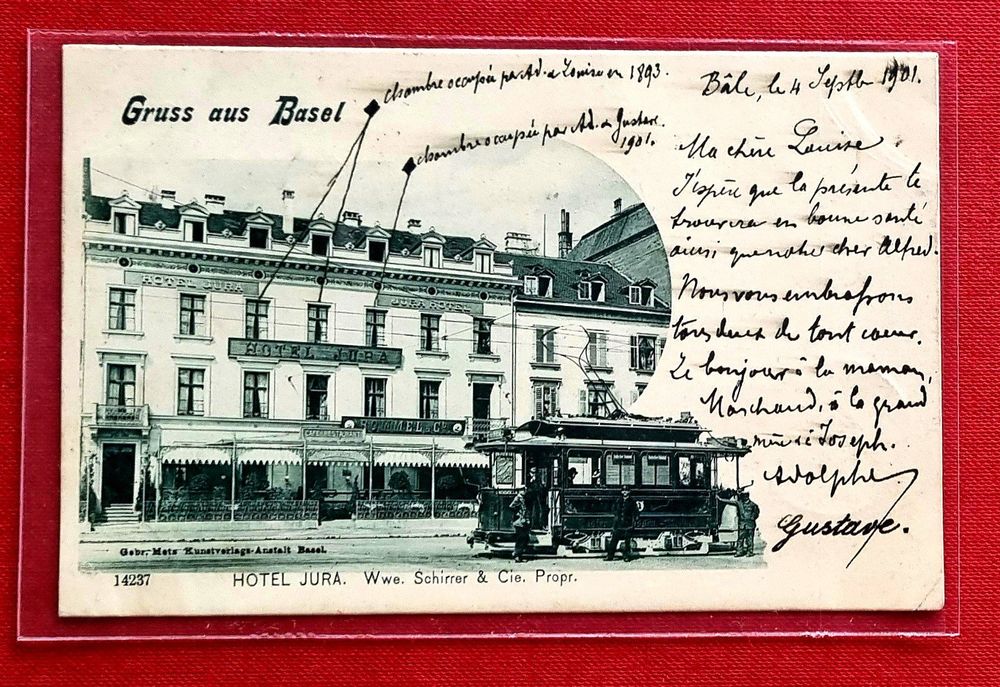 Gruss aus Basel
chambre occupée par Ad. & Louise en 1893.
chambre occupée par Ad. & Gustave.
1901.
Bâle, le 4 Septb 1901.
Ma chère Louise
J'espère que la présente te
trouvera en bonne santé
ainsi que notre cher Alfred.
Nous vous embrassons
tous deux de tout coeur.
Le bonjour à la maman
Marchand, à la grand
mère & Joseph.
Adolphe
Gustave.
HOTEL JURA
JURA HOTEL
HOTEL JURA
CAFÉ RESTAURANT
ROMMEL & Cie
Gebr. Metz Kunstverlags-Anstalt Basel.
14237
HOTEL JURA. Wwe. Schirrer & Cie. Propr.